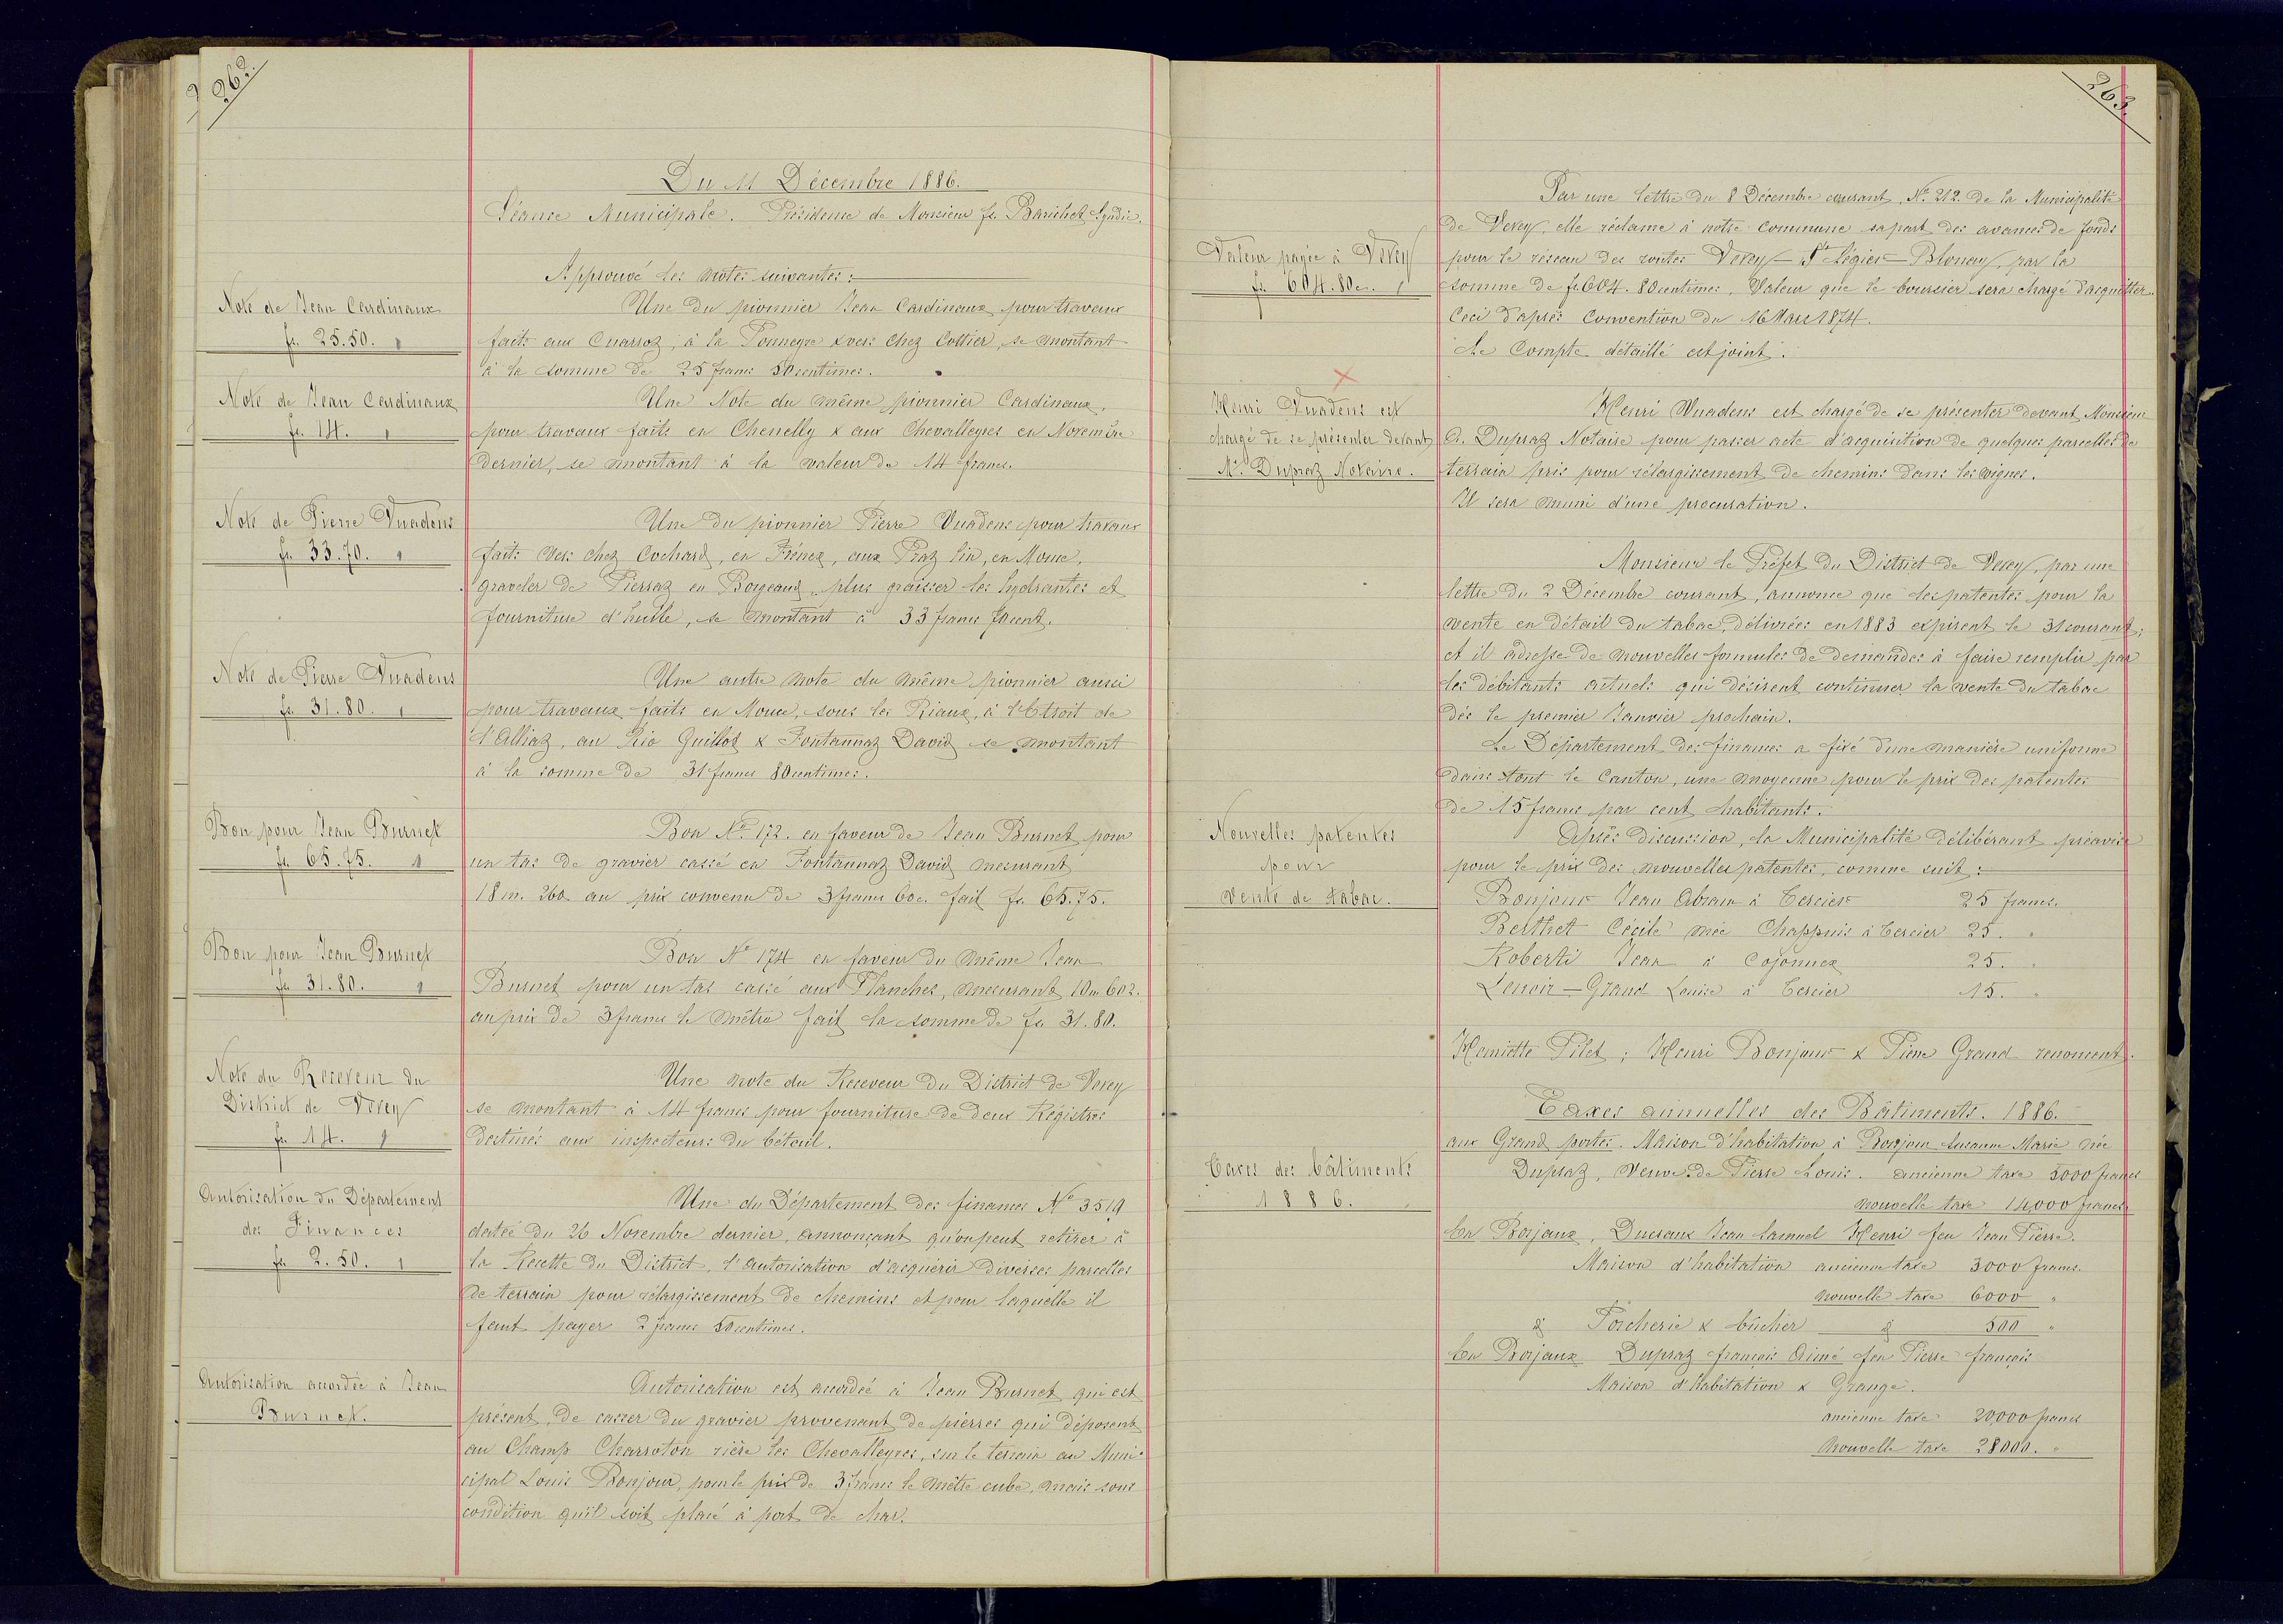 262.
Du 11 Décembre 1886.
Séance Municipale. Présidence de Monsieur fs. Barichet Syndic.
Approuvé les notes suivantes :
Note de Jean Cardinaux
fr. 25.50.
Une du pionnier Jean Cardinaux pour travaux
faits aux Cuarroz, à la Tonneyre & vers chez Cottier, se montant
à la somme de 25 francs 50 centimes.
Note de Jean Cardinaux
fr. 14.
Une Note du même pionnier Cardinaux,
pour travaux faits en Chenelly & aux Chevalleyres en Novembre
dernier, se montant à la valeur de 14 francs.
Note de Pierre Vuadens
fr. 33.70.
Une du pionnier Pierre Vuadens pour travaux
faits vers chez Cochard, en Frénez, aux Praz lin, en Mouce,
graveler de Pierraz en Borgeaud, plus graisser les hydrantes et
fourniture d'huile, se montant à 33 francs 70 cent.
Note de Pierre Vuadens
fr. 31.80.
Une autre note du même pionnier aussi
pour travaux faits en Mouce, sous les Riaux, à l'Etroit de
l'Alliaz, au Rio Guillot & Fontannaz David se montant
à la somme de 31 francs 80 centimes.
Bon pour Jean Burnet
fr. 65.75.
Bon No. 172. en faveur de Jean Burnet pour
un tas de gravier cassé en Fontannaz David mesurant
18 m. 260 au prix convenu de 3 francs 60 c. fait fr. 65.75.
Bon pour Jean Burnet
fr. 31.80.
Bon No 174 en faveur du même Jean
Burnet pour un tas cassé aux Planches, mesurant 10 m 602.
au prix de 3 francs le mètre fait la somme de fr. 31.80.
Note du Receveur du
District de Vevey
fr. 14.
Une note du Receveur du District de Vevey
se montant à 14 francs pour fourniture de deux Régistres
destinés aux inspecteurs du bétail.
Autorisation du Département
des Finances
fr. 2.50.
Une du Département des finances No 3519
datée du 26 Novembre dernier, annonçant qu'on peut retirer à
la Recette du District, l'autorisation d'acquérir diverses parcelles
de terrain pour rélargissement de chemins et pour laquelle il
faut payer 2 francs 50 centimes.
Autorisation accordée à Jean
Burnet.
Autorisation est accordée à Jean Burnet qui est
présent, de casser du gravier provenant de pierres qui déposent
au Champ Charroton rière les Chevalleyres, sur le terrain au Muni-
cipal Louis Bonjour, pour le prix de 3 francs le mètre cube, mais sous
condition qu'il soit placé à port de char.
263.
Valeur payée à Vevey
fr. 604.80 c.
Par une lettre du 8 Décembre courant, No. 212. de la Municipalité
de Vevey, elle réclame à notre commune sa part des avances de fonds
pour le réseau des routes Vevey – St Légier – Blonay, par la
somme de fr. 604. 80 centimes, Valeur que le boursier sera chargé d'acquitter.
Ceci d'après Convention du 16 Mars 1874.
Le Compte détaillé est joint.
Henri Vuadens est
chargé de se présenter devant
Mr. Dupraz Notaire.
Henri Vuadens est chargé de se présenter devant Monsieur
A. Dupraz Notaire pour passer acte d'acquisition de quelques parcelles de
terrain pris pour rélargissement de chemins dans les vignes.
Il sera muni d'une procuration.
Monsieur le Préfet du District de Vevey, par une
lettre du 2 Décembre courant, annonce que les patentes pour la
vente en détail du tabac, délivrées en 1883 expirent le 31 courant;
et il adresse de nouvelles formules de demandes à faire remplir par
les débitants actuels qui désirent continuer la vente du tabac
dès le premier Janvier prochain.
Le Département des finances a fixé d'une manière uniforme
dans tout le Canton, une moyenne pour le prix des patentes
de 15 francs par cent habitants.
Nouvelles patentes
pour
vente de tabac.
Après discussion, la Municipalité délibérant préavise
pour le prix des nouvelles patentes, comme suit :
Bonjour Jean Abram à Tercier 25 francs.
Berthet Cécile née Chappuis à Tercier 25. "
Roberti Jean à Cojonnex 25. "
Lenoir – Grand Louise à Tercier 15. "
Henriette Pilet ; Henri Bonjour & Pierre Grand renoncent.
Taxes des bâtiments
1886.
Taxes annuelles des Bâtiments. 1886.
aux Grand portes. Maison d'habitation à Bonjour Susanne Marie née
Dupraz, Veuve de Pierre Louis. ancienne taxe 5000 francs
nouvelle taxe 14,000 francs
En Borjaux, Ducraux Jean Samuel Henri feu Jean Pierre.
Maison d'habitation ancienne taxe 3000 francs.
nouvelle taxe 6000 "
d° Porcherie & bûcher d° 500 "
En Borjaux Dupraz François Aimé feu Pierre François
Maison d'habitation & Grange.
ancienne taxe 20,000 francs
nouvelle taxe 28000. "